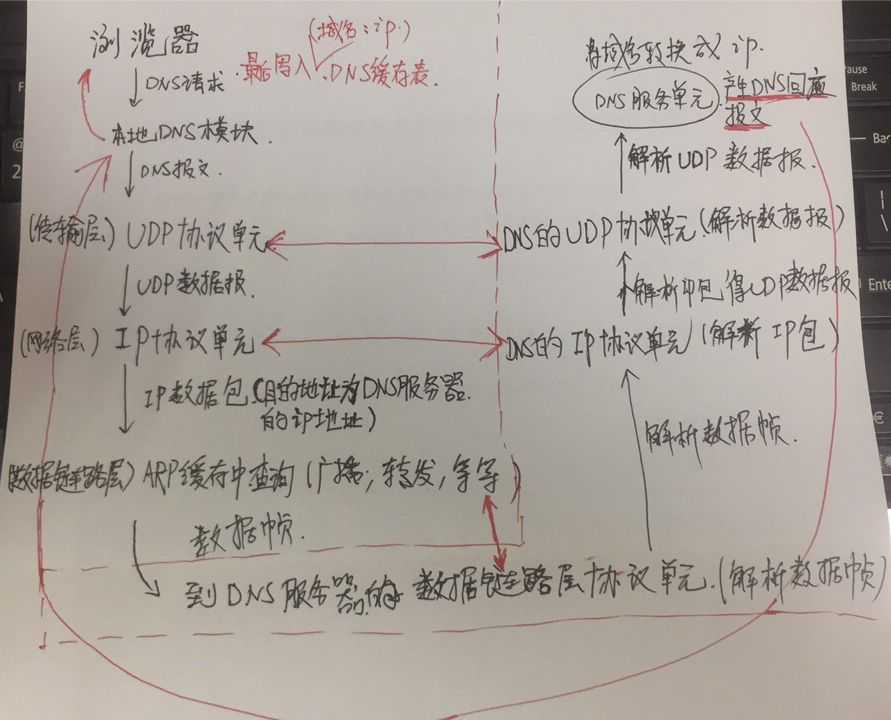 浏览器
DNS请求
最后写入(域名:ip.)
DNS缓存表.
本地DNS模块.
DNS报文.
(传输层) UDP协议单元
UDP数据报.
(网络层) IP协议单元
IP数据包.(目的地址为DNS服务器
的ip地址)
(数据链路层) ARP缓存中查询(广播;转发,等等)
数据帧.
到DNS服务器的 数据链路层协议单元.(解析数据帧)
解析数据帧.
DNS的IP协议单元(解析IP包)
解析IP包得UDP数据报
DNS的UDP协议单元(解析数据报)
解析UDP数据报.
DNS服务单元.
产生DNS回应
报文
将域名转换成ip.
F
@
2
ause
Break
Bac
\
Enter
€